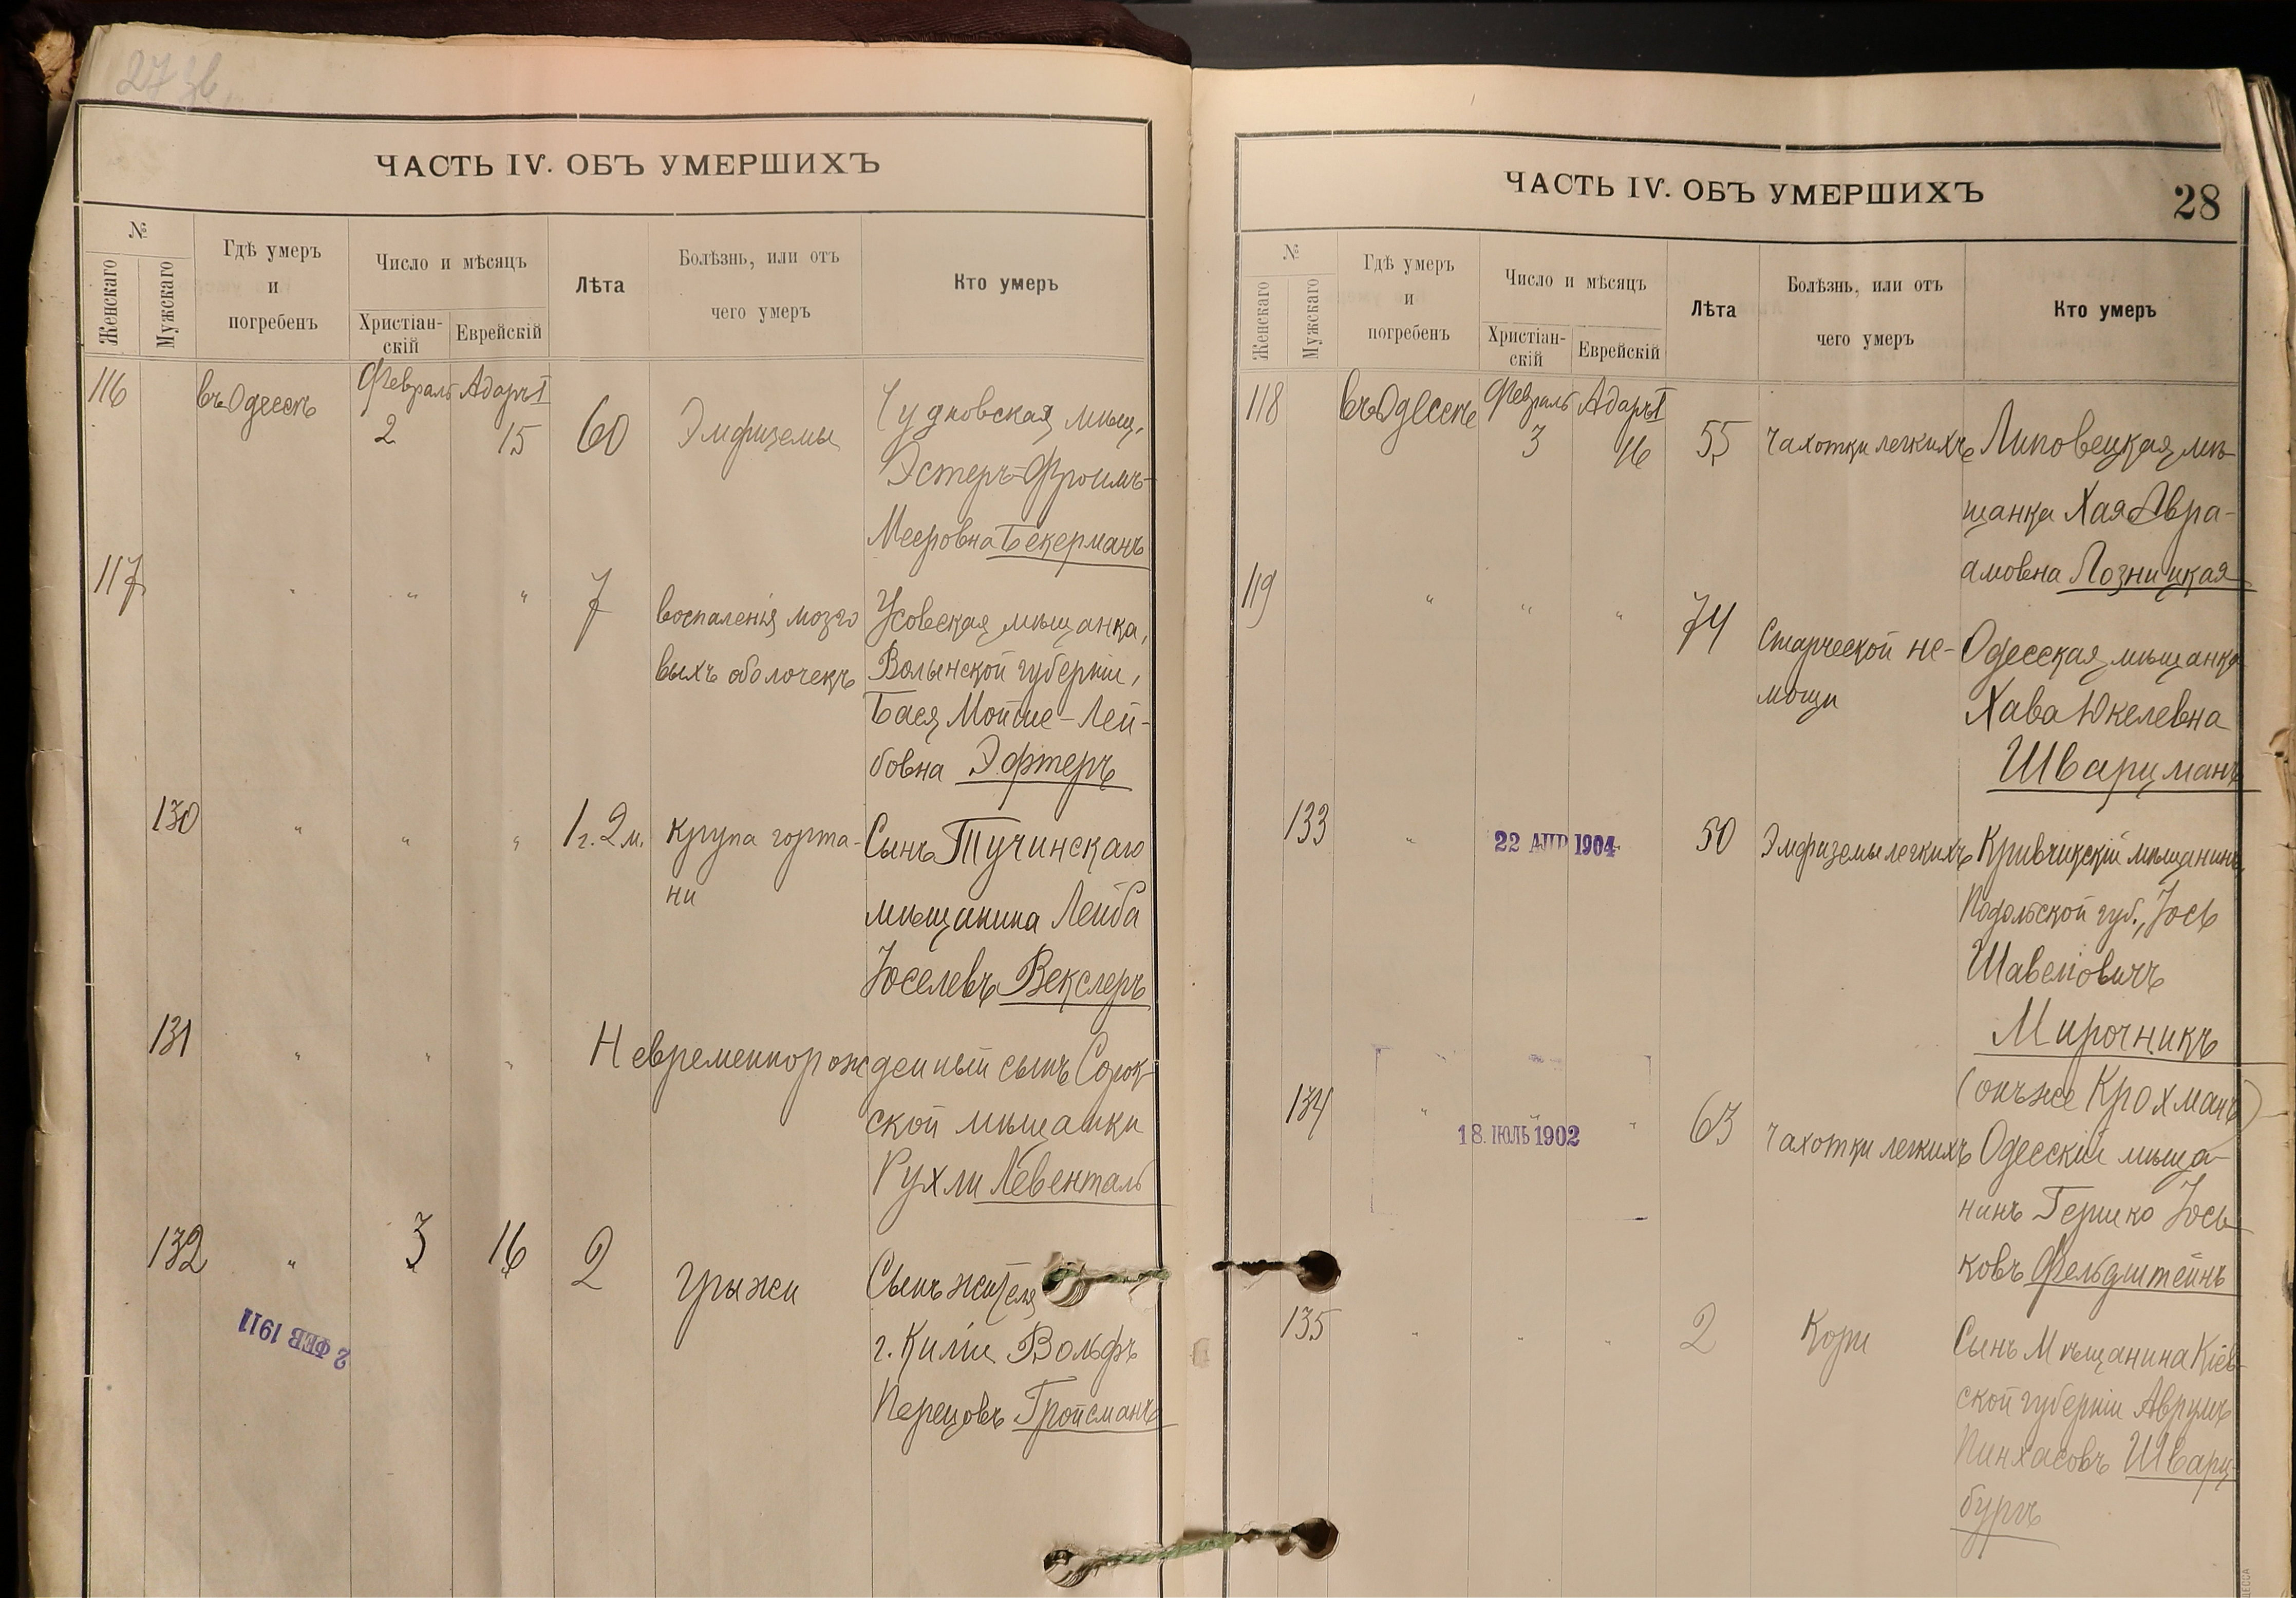 27 зв.
ЧАСТЬ IV. ОБЪ УМЕРШИХЪ
№
Женскаго
Мужскаго
Гдѣ умеръ
и
погребенъ
Число и мѣсяцъ
Христіан-
скій
Еврейскій
Лѣта
Болѣзнь, или отъ
чего умеръ
Кто умеръ
116 въ Одессѣ Февраль Адаръ I
2 15 60 Эмфиземы Чудновская мѣщ.
Эстеръ-Фроимъ-
Мееровна Бекерманъ
117 " " " 7 воспаленія мозго
выхъ оболочекъ
Усовская мѣщанка,
Волынской губерніи,
Бася Мотше-Лей-
бовна Эфтеръ
130 " " " 1 г. 2 м. крупа горта-
ни
Сынъ Тучинскаго
мѣщанина Лейба
Іоселевъ Векслеръ
131 " " " Невременнорожденный сынъ Сорок-
ской мѣщанки
Рухли Левенталь
132 " 3 16 2 грыжи Сынъ жителя
г. Киліи Вольфъ
Перецовъ Гройсманъ
2 ФЕВ 1911
ЧАСТЬ IV. ОБЪ УМЕРШИХЪ
28
№
Женскаго
Мужскаго
Гдѣ умеръ
и
погребенъ
Число и мѣсяцъ
Христіан-
скій
Еврейскій
Лѣта
Болѣзнь, или отъ
чего умеръ
Кто умеръ
118 въ Одессѣ Февраль Адаръ I
3 16 55 чахотки легкихъ Липовецкая мѣ-
щанка Хая Авра-
амовна Лозницкая
119 " " " 74 Старческой не-
мощи
Одесская мѣщанка
Хава Юкелевна
Шварцманъ
133 " 22 АПР 1904 50 Эмфиземы легкихъ Кривчикскій мѣщанинъ,
Подольской губ., Іось
Мирочникъ
(онъ же Крохманъ)
134 " " " 63 чахотки легкихъ Одесскій мѣща-
18. ІЮЛЬ 1902
нинъ Гершко Іось-
ковъ Фельдштейнъ
135 " " " 2 Кори Сынъ Мѣщанина Кіев-
ской губерніи Аврумъ
Пинхасовъ Шварц-
бургъ